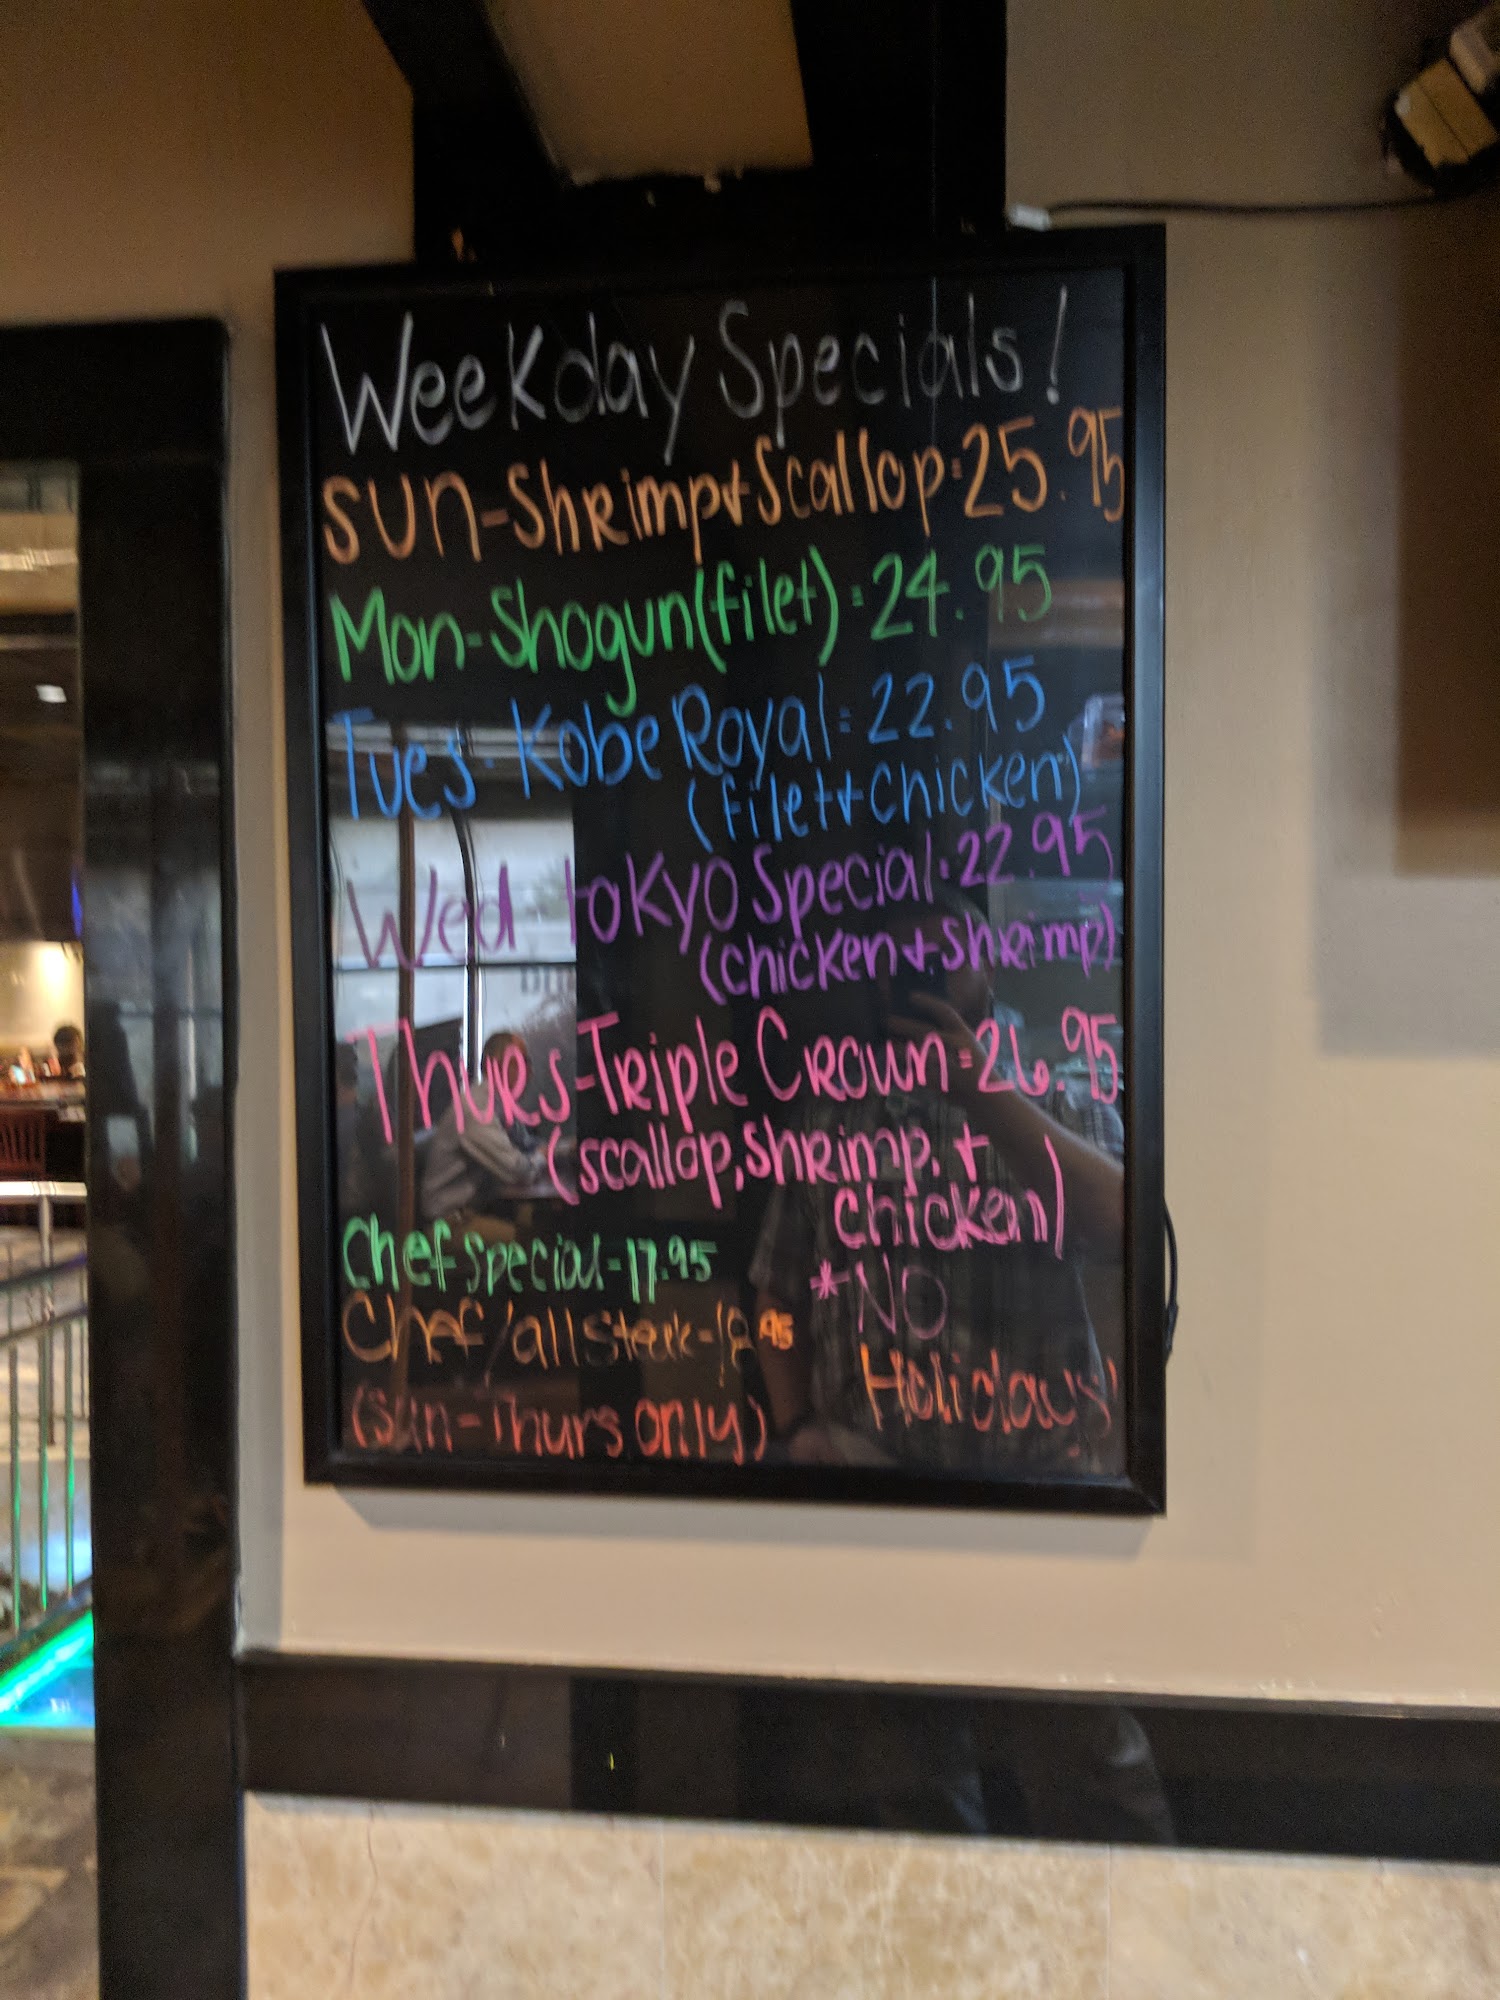 Weekday Specials!
SUN-Shrimp+Scallop=25.95
Mon-Shogun(filet)=24.95
Tues-Kobe Royal=22.95
(filet+chicken)
Wed-tokyo Special=22.95
(chicken+shrimp)
Thurs-Triple Crown=26.95
(scallop,shrimp,+
chicken)
Chef special-17.95
*NO
Chef/all Steak-18.95
Holidays!
(Sun-Thurs only)